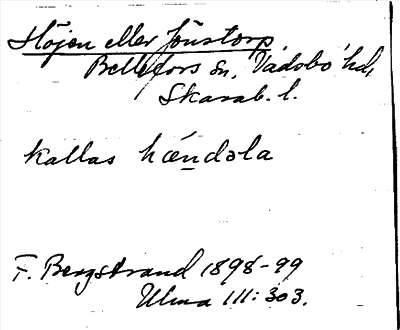 Höjen eller Jönstorp
Bellefors sn, Vadsbo hd,
Skarab. l.
Kallas hændəla
F. Bergstrand 1898-99
Ulma 111:303.